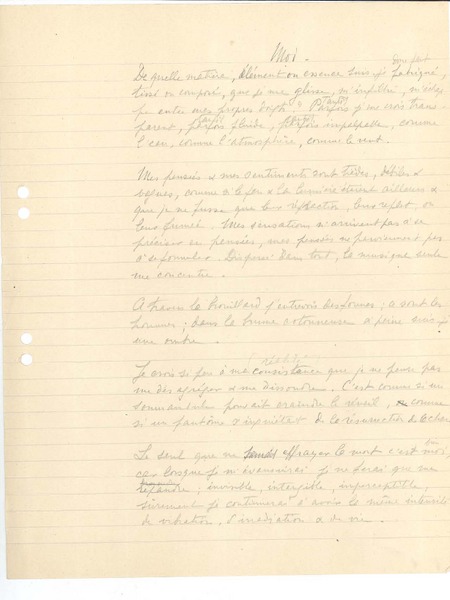 Moi.
donc fait
De quelle matière, élément ou essence suis-je fabriqué,
tissé ou composé, que je me glisse, m'infiltre,
entre mes propres doigts? Parfois je me crois trans-
Tantôt
parent, parfois fluide, parfois impalpable, comme
tantôt tantôt
l'eau, comme l'atmosphère, comme le vent.
Mes pensées & mes sentiments sont tièdes, débiles &
vagues, comme si le feu & la lumière étaient ailleurs &
que je ne fusse que leur réflection, leur reflet, ou
leur fumée. Mes sensations n'arrivent pas à se
préciser en pensées, mes pensées ne parviennent pas
à se formuler. Dispersé dans tout, la musique seule
me concentre.
A travers le brouillard j'entrevois des formes; ce sont les
hommes; dans la brume cotonneuse à peine suis-je
une ombre.
réalité
Je crois si peu à ma consistance que je ne pense pas
me désagréger & me dissoudre. C'est comme si un
somnambule pouvait craindre le réveil, comme
si un fantôme s'inquiétait de la résurrection de la chair
Le seul que ne saurait effrayer la mort c'est moi,
car lorsque je m'évanouirai je ne ferai que me
répandre, invisible, intangible, imperceptible,
sûrement je continuerai d'avoir la même intensité
de vibration, d'irradiation & de vie.